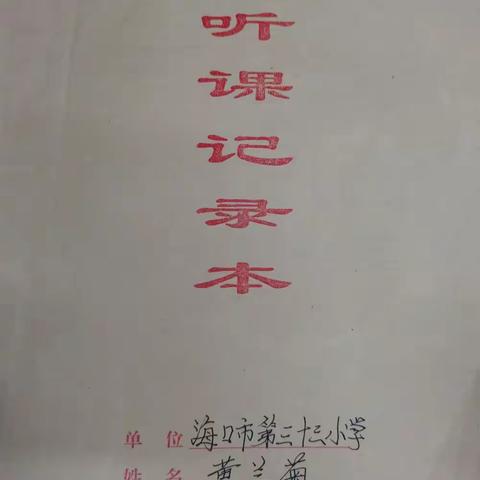 听
课
记
录
本
单 位 海口市第三十三小学
姓 名 黄兰菊